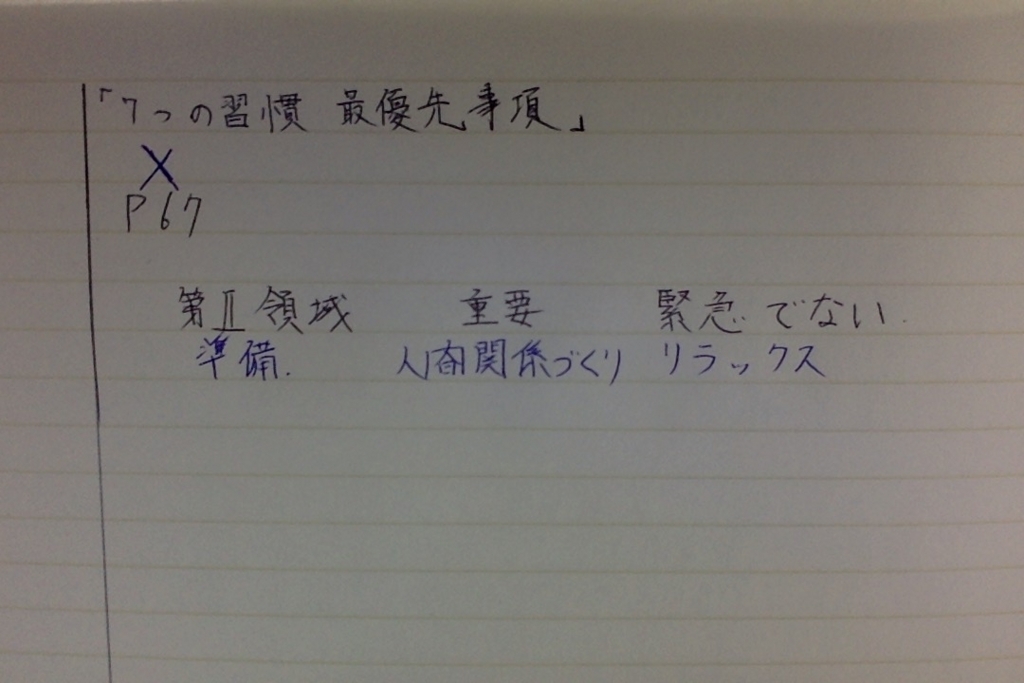 「7つの習慣 最優先事項」
X
P67
第Ⅱ領域 重要 緊急でない.
準備. 人間関係づくり リラックス